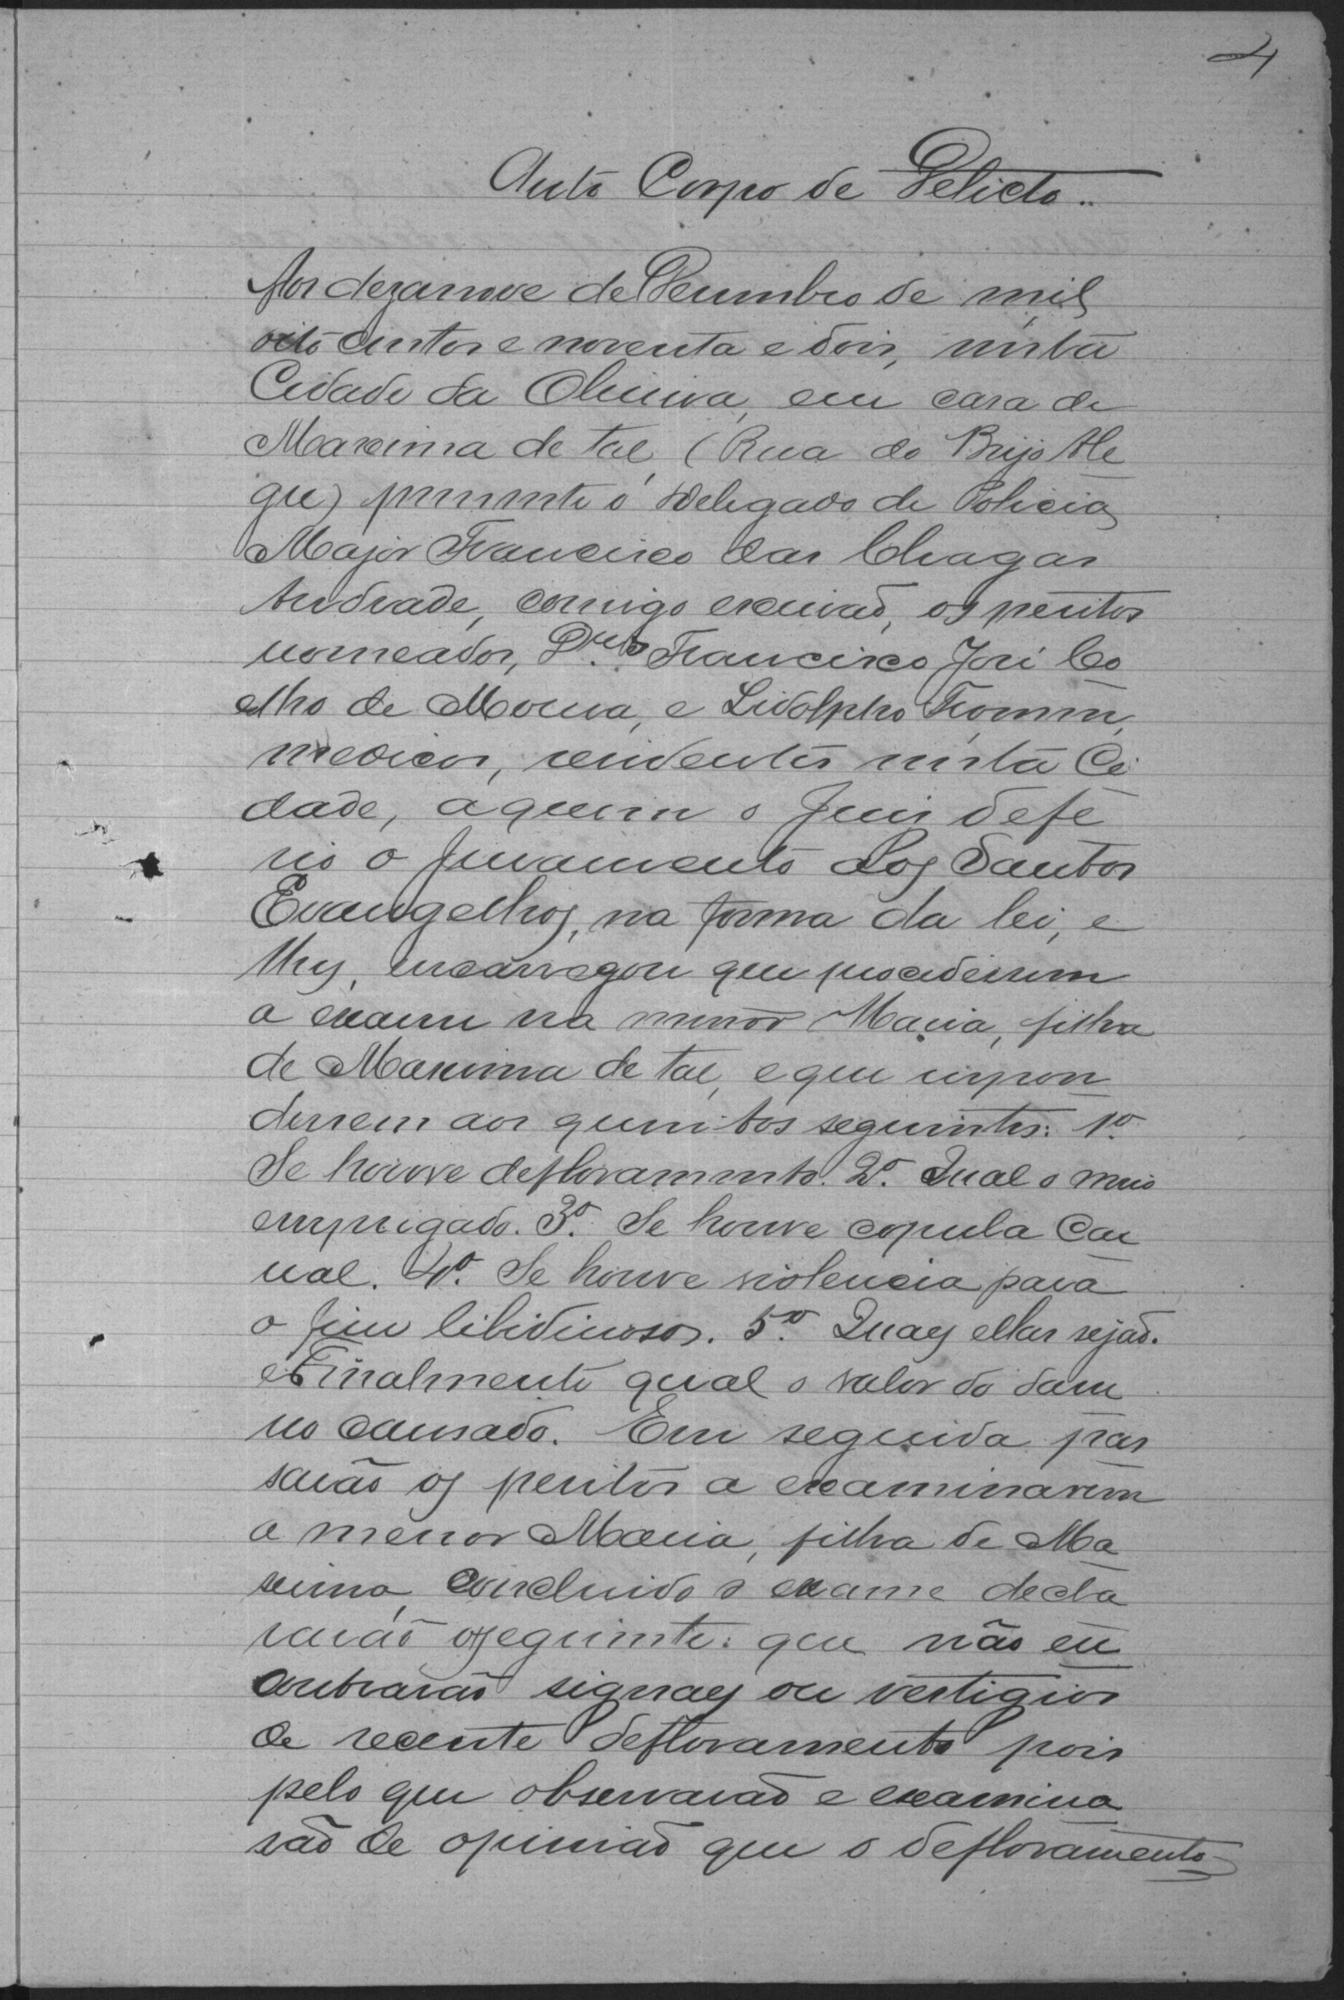 4
Auto Corpo de Delicto..
Aos dezanove de Dezembro de mil
oito centos e noventa e dois, nesta
Cidade da Oliveira, em casa de
Maxima de tal, (Rua do Brejo Ale
gre) presente o Delegado de Policia
Major Francisco das Chagas
Andrade, comigo escrivão, os peritos
nomeados, Dres Francisco José Co
elho de Moura, e Lidolpho Fromm,
medicos, residentes nesta Ci
dade, a quem o Juis defe
rio o juramento dos Santos
Evangelhos, na forma da lei, e
lhes encarregou que procedessem
a exame na menor Maria, filha
de Maxima de tal, e que respon
dessem aos quesitos seguintes: 1º
Se houve defloramento. 2º. Qual o meio
empregado. 3º. Se houve copula car
nal. 4º. Se houve violencia para
o fim libidinosos. 5º. Quaes ellas sejão.
e Finalmente qual o valor do dam
no causado. Em seguida pas
sarão os peritos a examinarem
a menor Maria, filha de Ma
xima, concluido o exame decla
rarão o seguinte: que não en
contrarão signaes ou vestigios
de recente defloramento pois
pelo que observarão e examina
rão de opinião que o defloramento